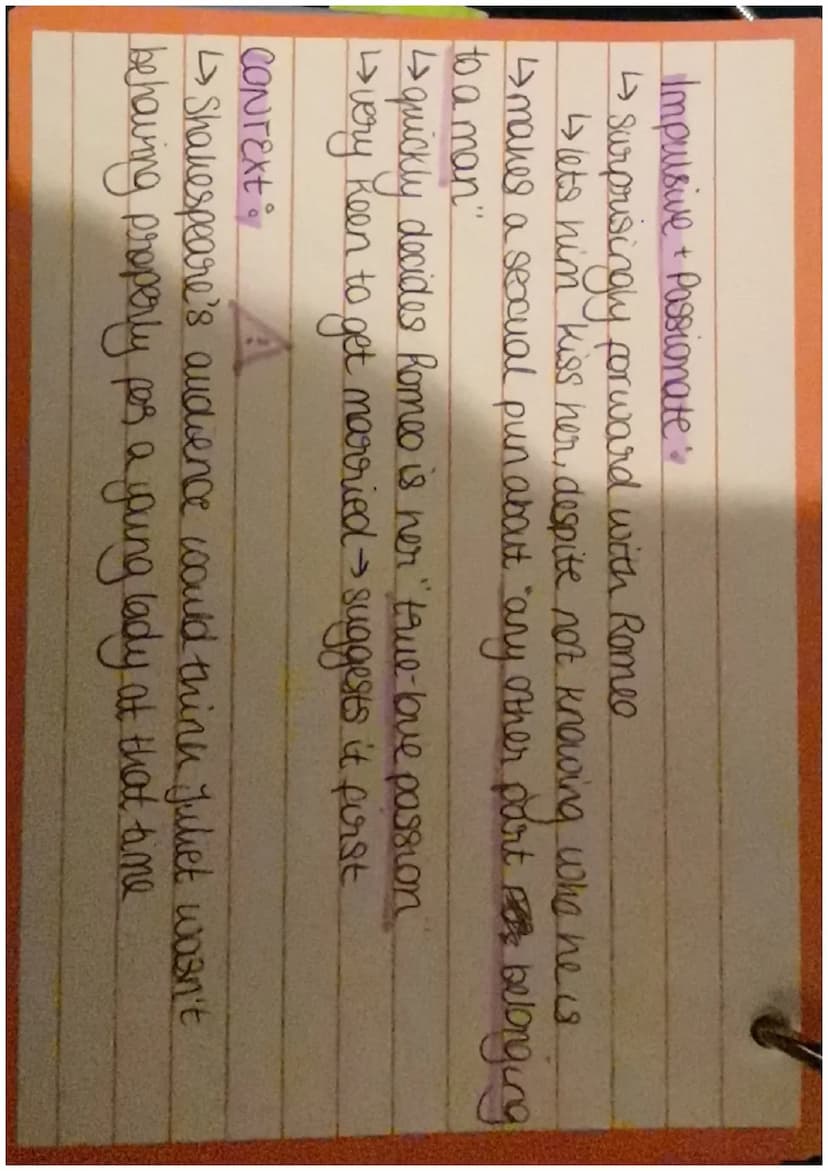 Impulsive + Passionate:
↳ surprisingly forward with Romeo
↳ lets him kiss her, despite not knowing who he is
↳ makes a sexual pun about "any other part belonging
to a man"
↳ quickly decides Romeo is her "true-love passion"
↳ very keen to get married → suggests it first
CONTEXT:
↳ Shakespeare's audience would think Juliet wasn't
behaving properly for a young lady at that time